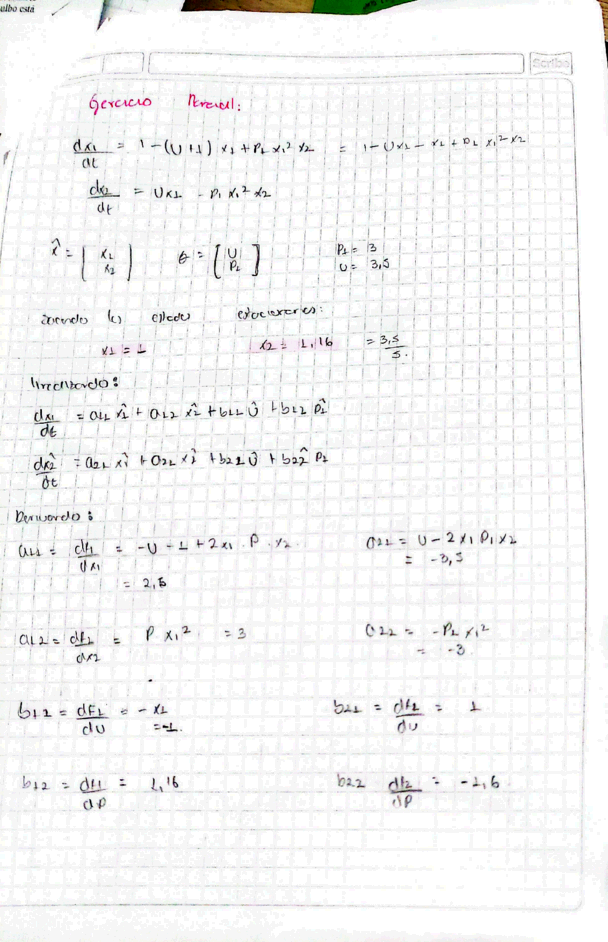 ulbo está
Scribe
Ejercicio Parcial:
dx1/dt = 1-(U+1) x1 + P1 x1² x2 = 1-Ux1 - x1 + P1 x1² x2
dx2/dt = Ux1 - P1 x1² x2
x̂ = [x1 x2] θ = [U P1] P1 = 3
U = 3,5
los estados estacionarios:
x1 = 1 x2 = 1,16 = 3,5/3.
linealizando:
dx1/dt = a11 x̂1 + a12 x̂2 + b11 Û + b12 P̂1
dx̂2/dt = a21 x̂1 + a22 x̂2 + b21 Û + b22 P̂1
Derivando:
a11 = df1/dx1 = -U - 1 + 2x1 . P . x2. a21 = U - 2 x1 P1 x2
= 2,5 = -3,5
a12 = df1/dx2 = P x1² = 3 a22 = -P1 x1²
= -3
b11 = dF1/dU = - x1 b21 = df2/dU = 1
= -1.
b12 = df1/dP = 1,16 b22 df2/dP = -1,6